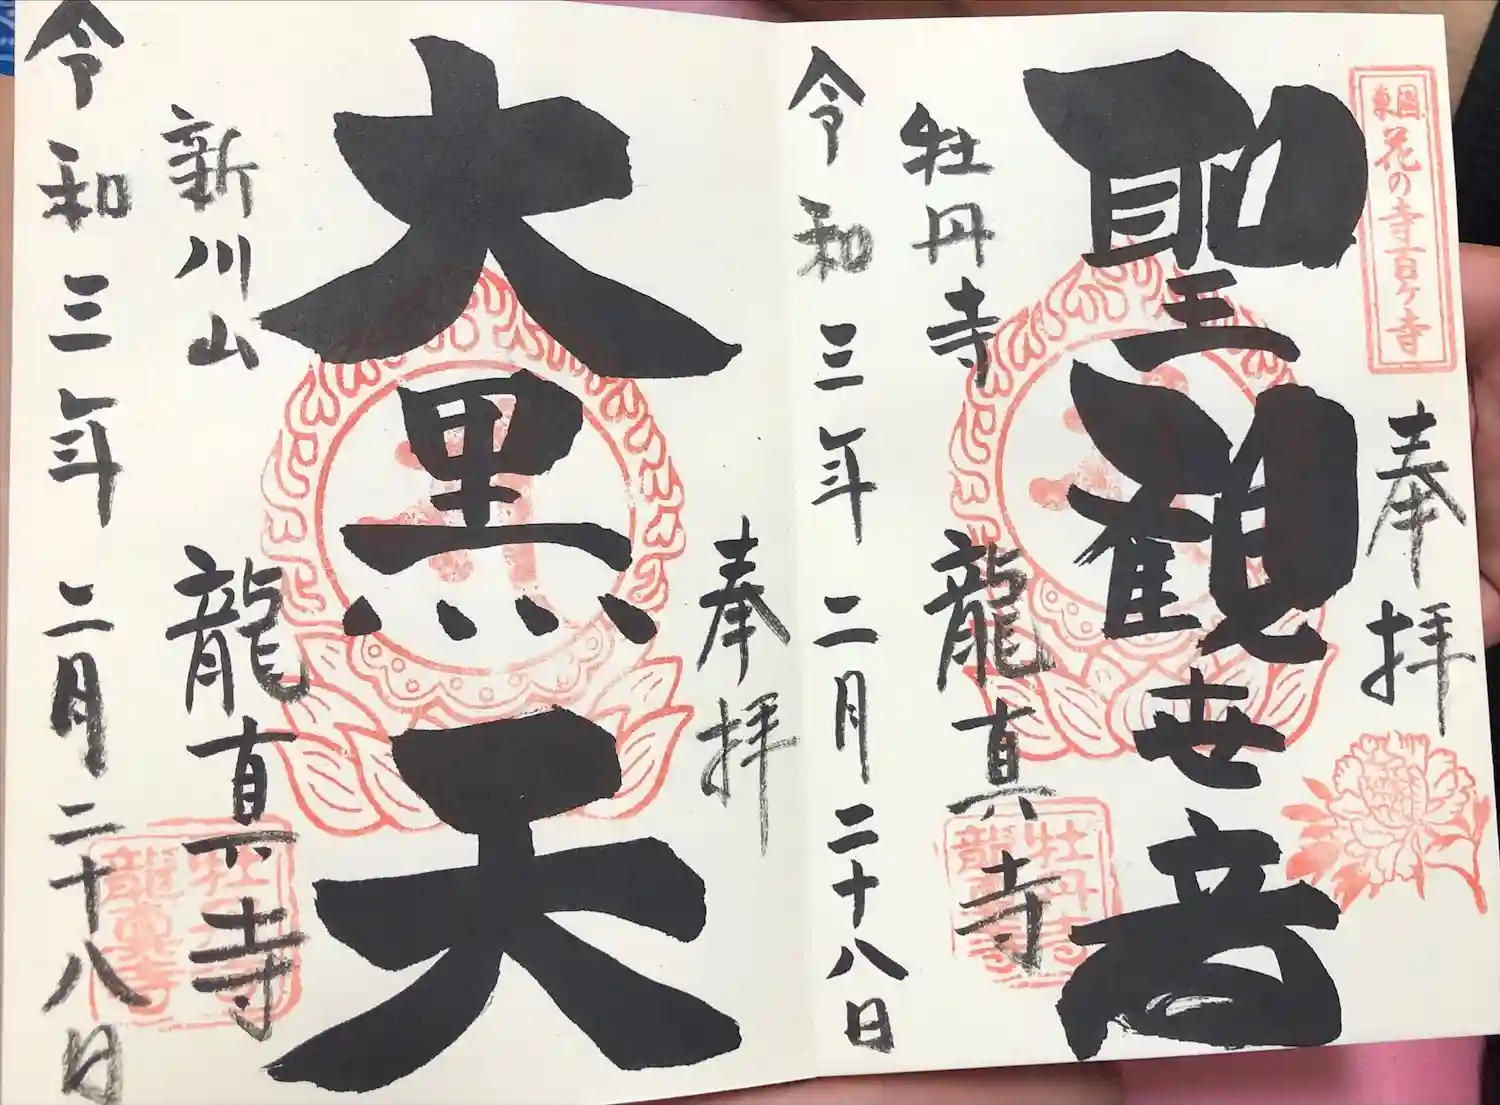 東国花の寺百ヶ寺
奉拝
聖観世音
牡丹寺
龍真寺
牡丹寺
龍真寺
令和三年二月二十八日
奉拝
大黒天
新川山
龍真寺
牡丹寺
龍真寺
令和三年二月二十八日